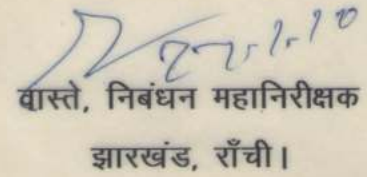 27.1.10
वास्ते, निबंधन महानिरीक्षक
झारखंड, राँची।